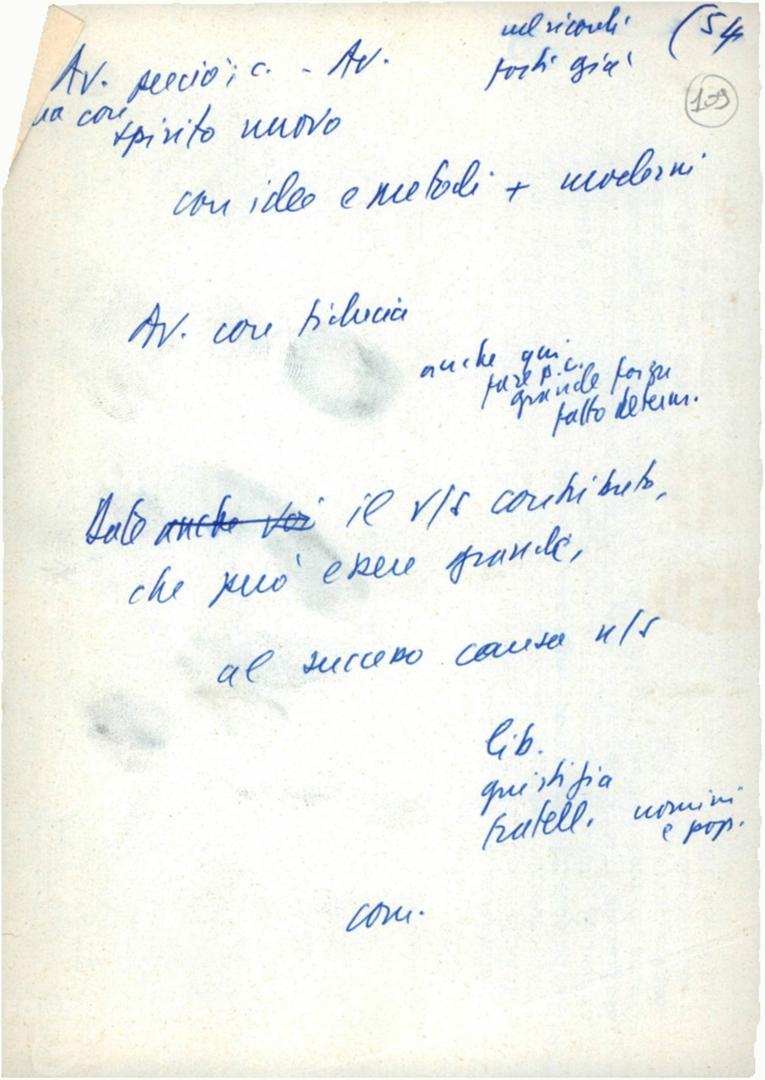 Av. perciò, c. - Av.
nel ricordi
forti già
(54
109
ma con
spirito nuovo
con idee e metodi + moderni
Av. con fiducia
anche qui
fare p.c.
grande forza
fatto determ.
Date anche voi il v/s contributo,
che può essere grande,
al successo causa n/s
lib.
giustizia
fratell. uomini
e pop.
com.